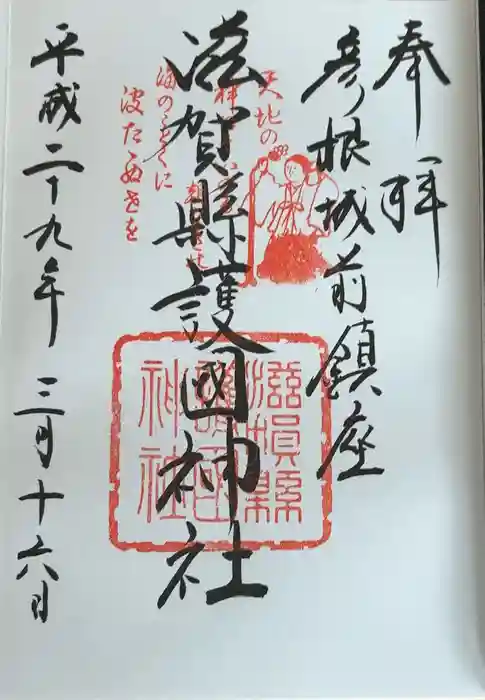 奉拝
彦根城前鎮座
滋賀縣護國神社
平成二十九年 三月十六日
天地の
海のことくに
波たゝぬ世を
滋賀縣
護國
神社